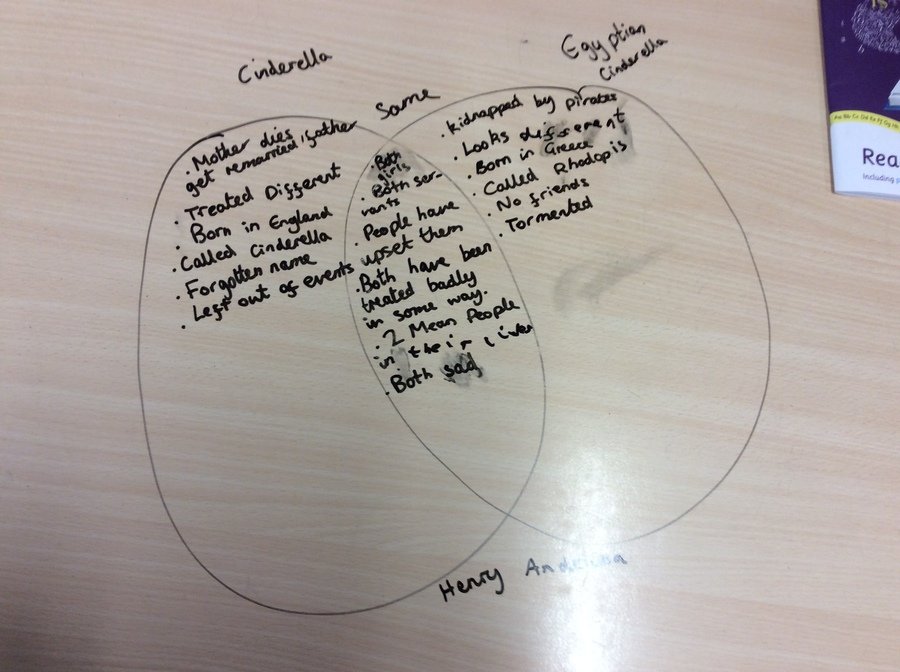 Cinderella
Egyptian
Cinderella
Same
. Mother dies
get remarried, father
. Treated Different
. Born in England
. Called Cinderella
. Forgotten name
. Left out of events
. Both
girls
. Both ser-
vants
. People have
upset them
. Both have been
treated badly
in some way.
. 2 Mean People
in their lives
. Both sad
. kidnapped by pirates
. Looks different
. Born in Greece
. Called Rhodopis
. No friends
. Tormented
Henry
Rea